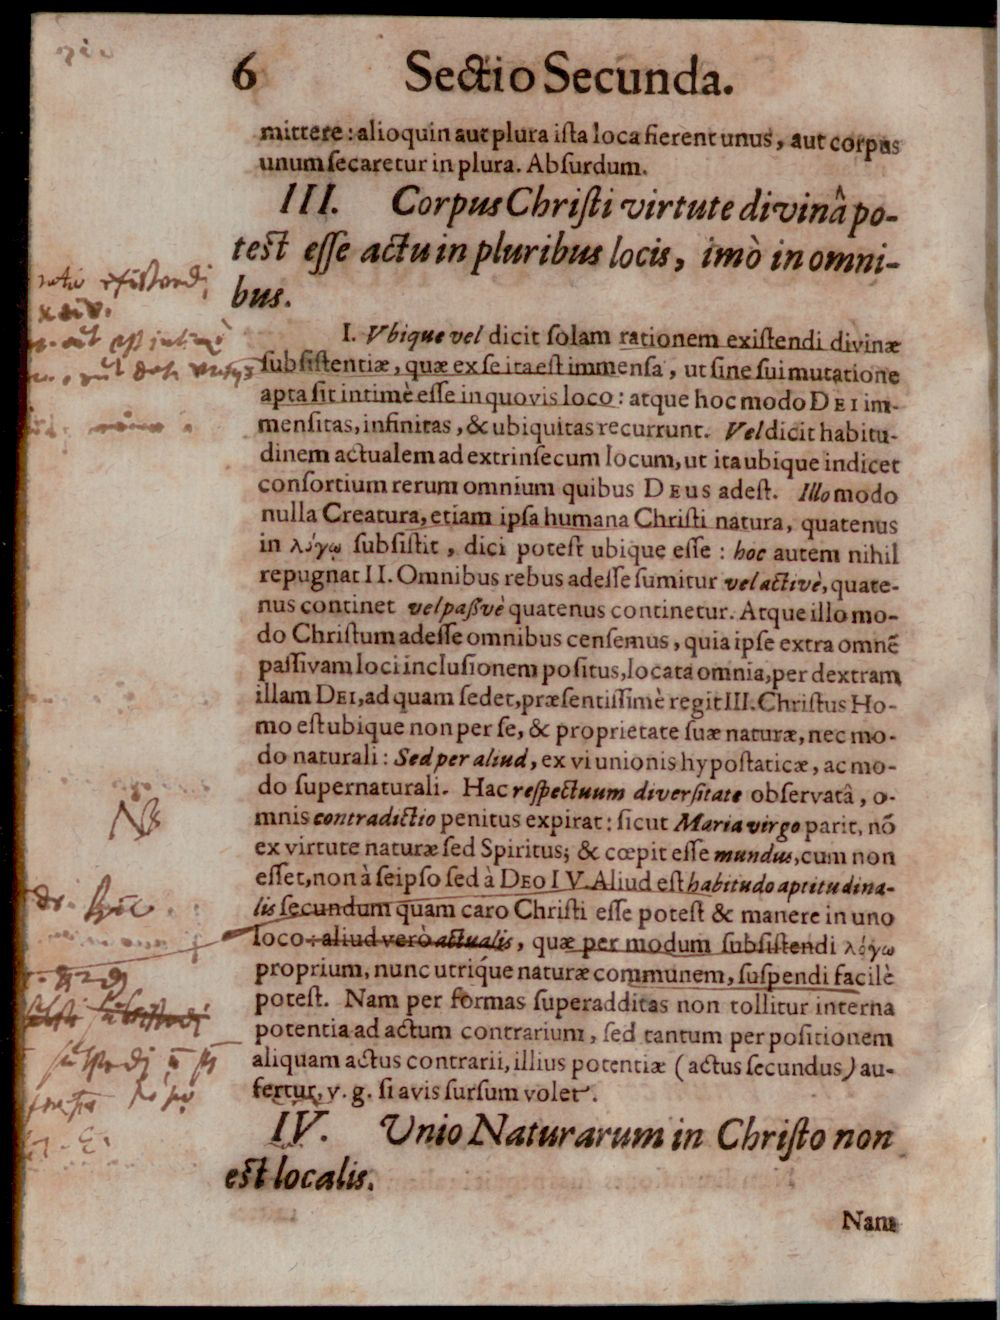 6 Sectio Secunda.
mittere : alioquin aut plura iſta loca fierent unus, aut corpus
unum ſecaretur in plura. Abſurdum.
III. Corpus Chriſti virtute divinâ po-
teſt eſſe actu in pluribus locis, imò in omni-
bus.
I. Vbique vel dicit ſolam rationem exiſtendi divinæ
ſubſiſtentiæ, quæ ex ſe ita eſt immenſa, ut ſine ſui mutatione
apta ſit intimè eſſe in quovis loco : atque hoc modo DEI im-
menſitas, infinitas, & ubiquitas recurrunt. Vel dicit habitu-
dinem actualem ad extrinſecum locum, ut ita ubique indicet
conſortium rerum omnium quibus DEUS adeſt. Illo modo
nulla Creatura, etiam ipſa humana Chriſti natura, quatenus
in λόγῳ ſubſiſtit, dici poteſt ubique eſſe : hoc autem nihil
repugnat II. Omnibus rebus adeſſe ſumitur vel activè, quate-
nus continet vel paßvè quatenus continetur. Atque illo mo-
do Chriſtum adeſſe omnibus cenſemus, quia ipſe extra omnẽ
paſſivam loci incluſionem poſitus, locata omnia, per dextram
illam DEI, ad quam ſedet, præſentiſſimè regit III. Chriſtus Ho-
mo eſt ubique non per ſe, & proprietate ſuæ naturæ, nec mo-
do naturali : Sed per aliud, ex vi unionis hypoſtaticæ, ac mo-
do ſupernaturali. Hac reſpectuum diverſitate obſervatâ, o-
mnis contradictio penitus expirat : ſicut Maria virgo parit, nõ
ex virtute naturæ ſed Spiritus; & cœpit eſſe mundus, cum non
eſſet, non à ſeipſo ſed à DEO IV. Aliud eſt habitudo aptitudina-
lis ſecundum quam caro Chriſti eſſe poteſt & manere in uno
loco : aliud verò actualis, quæ per modum ſubſiſtendi λόγῳ
proprium, nunc utriq́ue naturæ communem, ſuſpendi facilè
poteſt. Nam per formas ſuperadditas non tollitur interna
potentia ad actum contrarium, ſed tantum per poſitionem
aliquam actus contrarii, illius potentiæ (actus ſecundus) au-
fertur, v. g. ſi avis ſurſum volet.
IV. Unio Naturarum in Chriſto non
eſt localis.
Nam